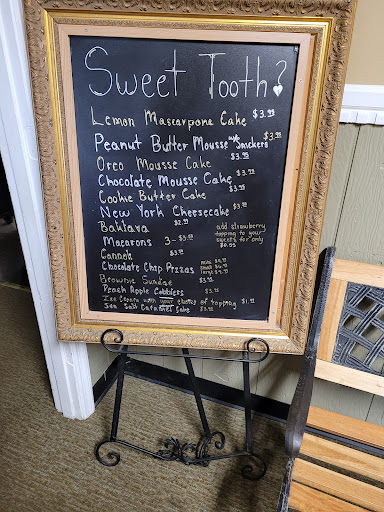 Sweet Tooth?
Lemon Mascarpone Cake $3.99
Peanut Butter Mousse w/ Snickers $3.99
Oreo Mousse Cake $3.99
Chocolate Mousse Cake $3.99
Cookie Butter Cake $3.99
New York Cheesecake $3.99
Baklava $2.99
Macarons 3- $3.99
Cannoli $3.99
add strawberry
topping to your
sweets for only
$0.55
Chocolate Chip Pizzas mini
small
large
Brownie Sundae
Peach Apple Cobblers
Ice Cream with your choice of topping
Sea Salt Caramel Cake